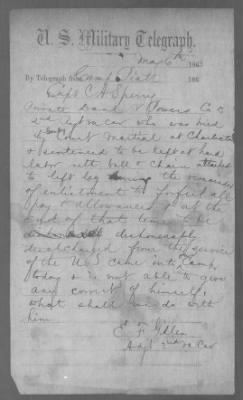 U. S. Military Telegraph.
May 6th 1865
By Telegraph from Camp Piatt 186
Capt C H Sperry
Private David V Powers Co D
2nd regt va cav who was tried
by Court Martial at Charleston
& sentenced to be left at hard
labor with ball & chain attached
to left leg during the remainder
of enlistment to forfeit all
pay & allowances & at the
end of that time to be
dishonorably
discharged from the service
of the U S came into Camp
today & is not able to give
any account of himself
what shall we do with
him
E F
Adjt 2nd va Cav